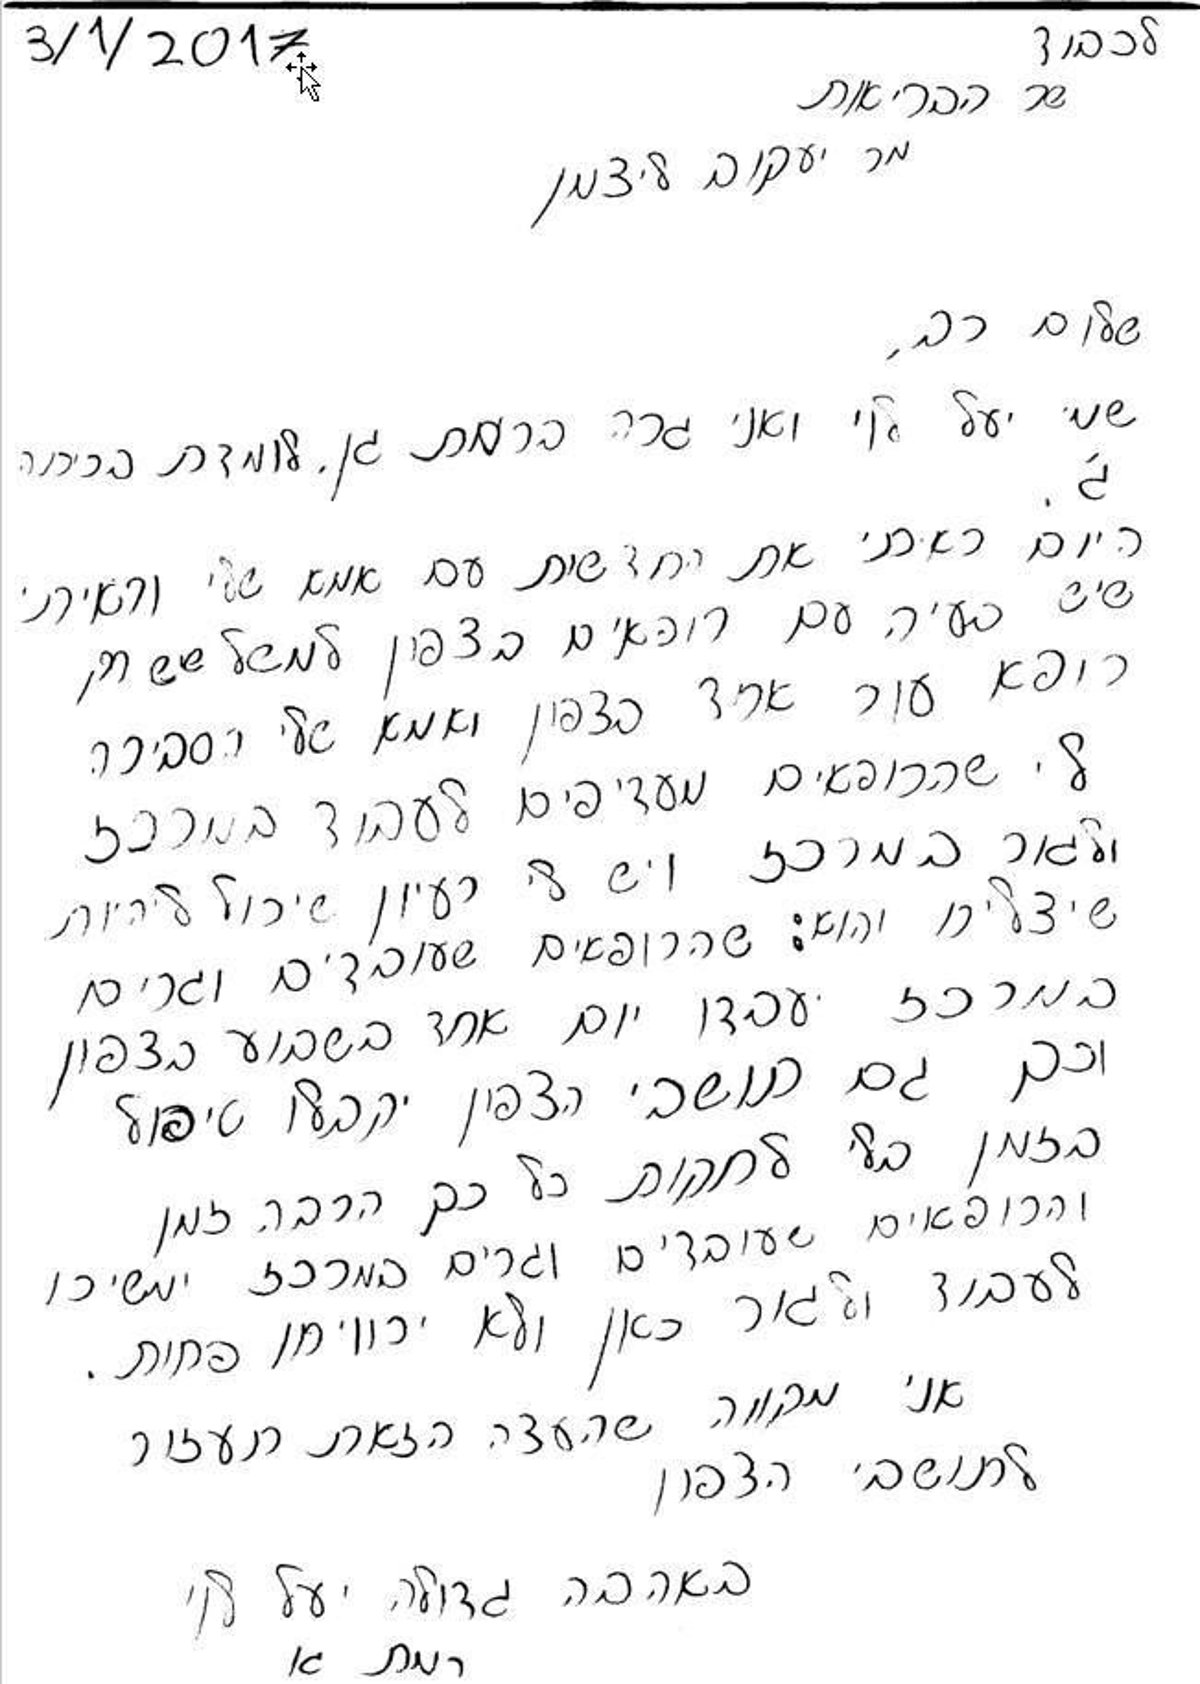 3/1/2017
לכבוד
שר הבריאות
מר יעקוב ליצמן
שלום רב,
שמי יעל לוי ואני גרה ברמת גן. לומדת בכיתה
ג'.
היום ראיתי את החדשות עם אמא שלי וראיתי
שיש בעיה עם רופאים בצפון למשל שיש רק
רופא עור אחד בצפון ואמא שלי הסבירה
לי שהרופאים מעדיפים לעבוד במרכז
ולגור במרכז ויש לי רעיון שיכול להיות
שיצליח והוא: שהרופאים שעובדים וגרים
במרכז יעבדו יום אחד בשבוע בצפון
וכך גם תושבי הצפון יקבלו טיפול
בזמן בלי לחקות כל כך הרבה זמן
והרופאים שעובדים וגרים במרכז ימשיכו
לעבוד ולגור כאן ולא ירוויחו פחות.
אני מקווה שהעצה הזאת תעזור
לתושבי הצפון
באהבה גדולה יעל לוי
רמת ג